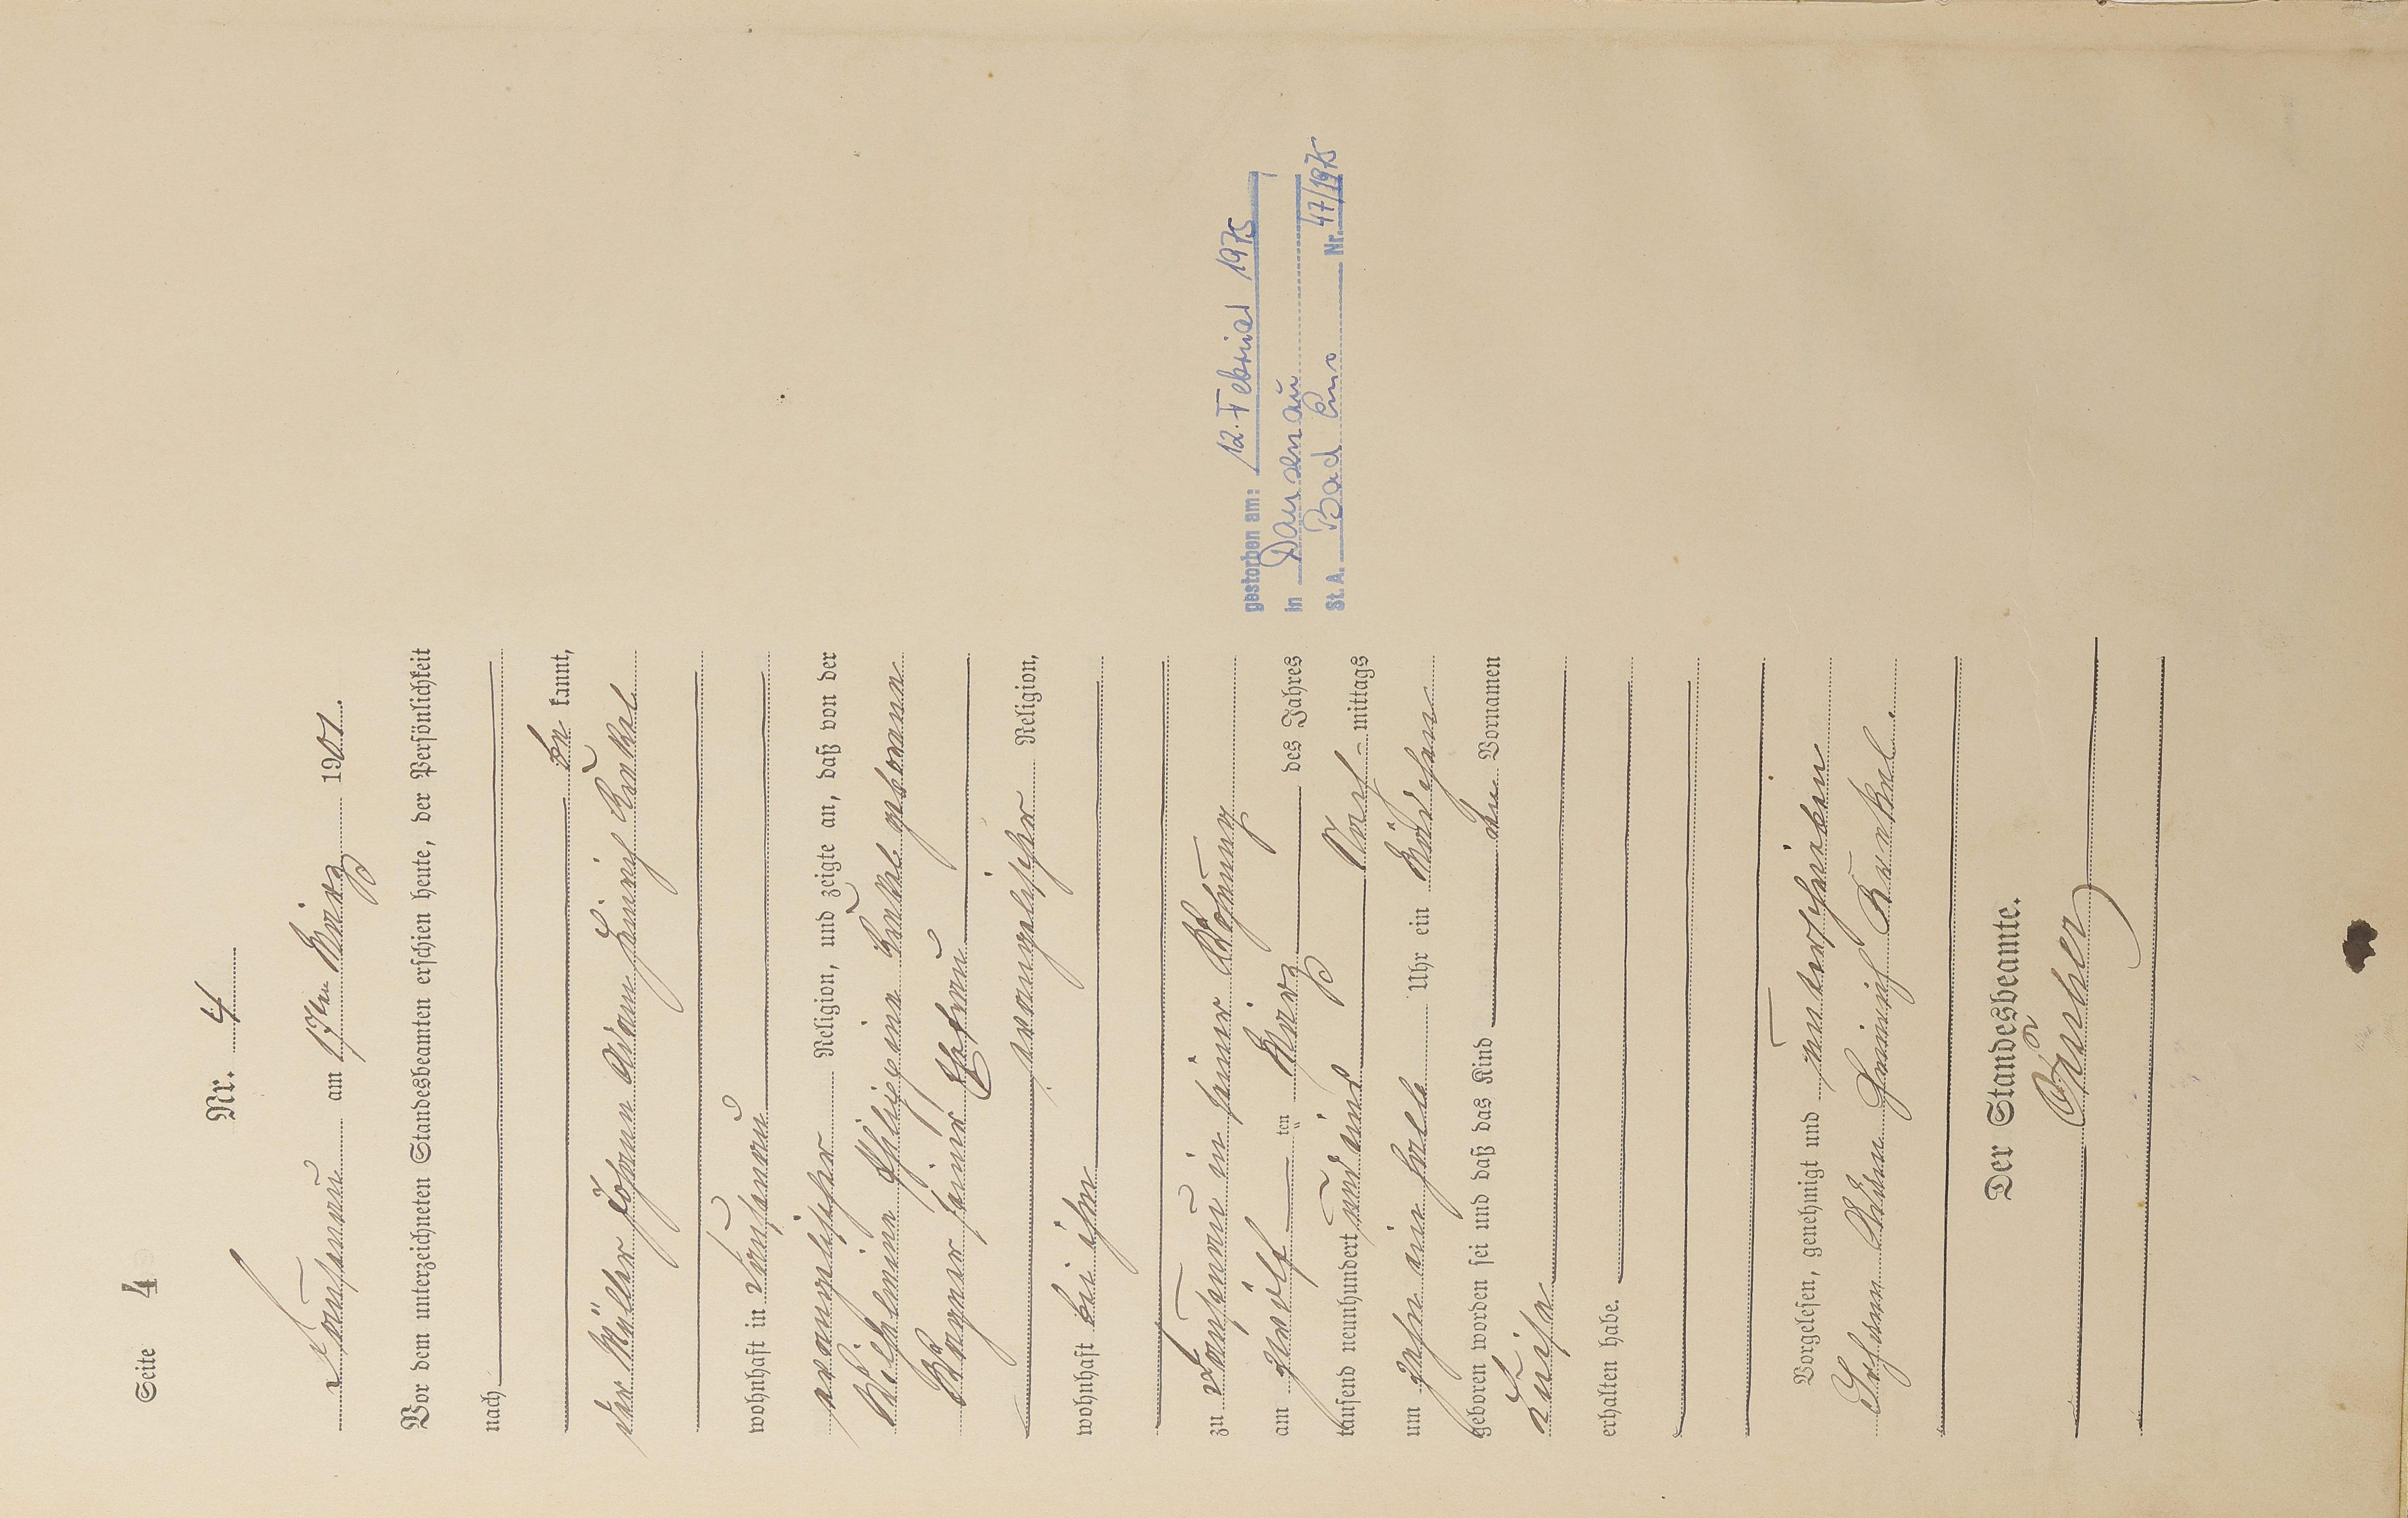 Seite 4
Nr. 4
Dausenau am 17ten März 1901.
Vor dem unterzeichneten Standesbeamten erschien heute, der Persönlichkeit
nach
be kannt,
der Müller Johann Adam Heinrich Kunkel
wohnhaft in Dausenau
evangelischer Religion, und zeigte an, daß von der
Wilhelmine Philippine Kunkel geborenen
Wagner seiner Ehefrau
evangelischer Religion,
wohnhaft bei ihm
zu Dausenau in seiner Wohnung
am zwölf ten März des Jahres
tausend neunhundert und eins Vor mittags
um zehn ein halb Uhr ein Mädchen
geboren worden sei und daß das Kind den Vornamen
Luise
erhalten habe.
Vorgelesen, genehmigt und unterschrieben
Johann Adam Heinrich Kunkel.
Der Standesbeamte.
gestorben am: 12. Februar 1975
in Dausenau
St. A. Bad Ems Nr. 47/1975